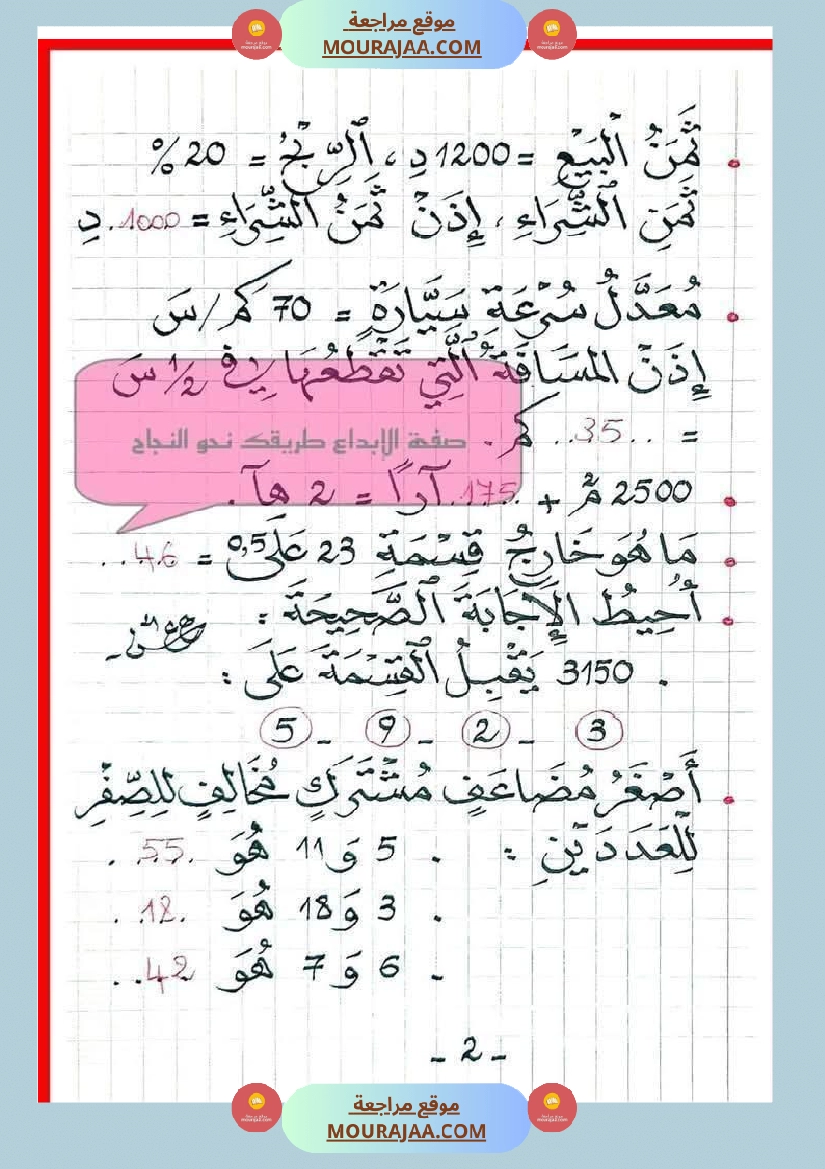 موقع مراجعة
MOURAJAA.COM
. ثَمَنُ الْبَيْعِ = 1200 دِ ، الرِّبْحُ = 20 %
ثَمَنِ الشِّرَاءِ ، إِذَنْ ثَمَنُ الشِّرَاءِ = 1000. دِ
. مُعَدَّلُ سُرْعَةِ سَيَّارَةٍ = 70 كم/سَ
إِذَنْ الْمَسَافَةُ الَّتِي تَقْطَعُهَا فِي 1/2 سَ
= ..35.. كم.
صفحة الإبداع طريقك نحو النجاح
. 2500 م² + .175. آرًا = 2 هآ.
. مَا هُوَ خَارِجُ قِسْمَةِ 23 عَلَى 0,5 = 46..
. أُحِيطُ الْإِجَابَةَ الصَّحِيحَةَ :
. 3150 يَقْبِلُ الْقِسْمَةَ عَلَى :
3 - 2 - 9 - 5
. أَصْغَرُ مُضَاعَفٍ مُشْتَرَكٍ مُخَالِفٍ لِلصِّفْرِ
لِلْعَدَدَيْنِ :
. 5 وَ 11 هُوَ .55. .
. 3 وَ 18 هُوَ .18. .
. 6 وَ 7 هُوَ 42..
- 2 -
موقع مراجعة
MOURAJAA.COM